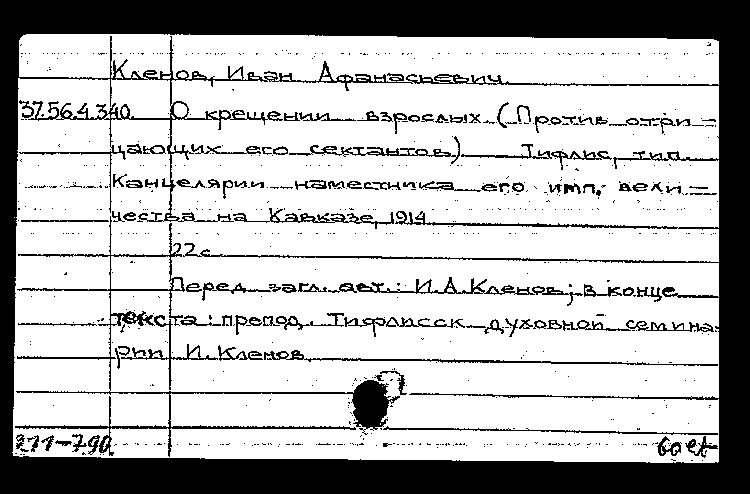 Кленов, Иван Афанасьевич.
37.56.4.340. О крещении взрослых (Против отри=
цающих его сектантов) Тифлис, тип.
Канцелярии наместника его имп. вели=
чества на Кавказе, 1914.
22 с.
Перед загл. авт.: И.А.Кленов; в конце
текста: препод. Тифлисск. духовной семина-
рии И. Кленов.
211-790.